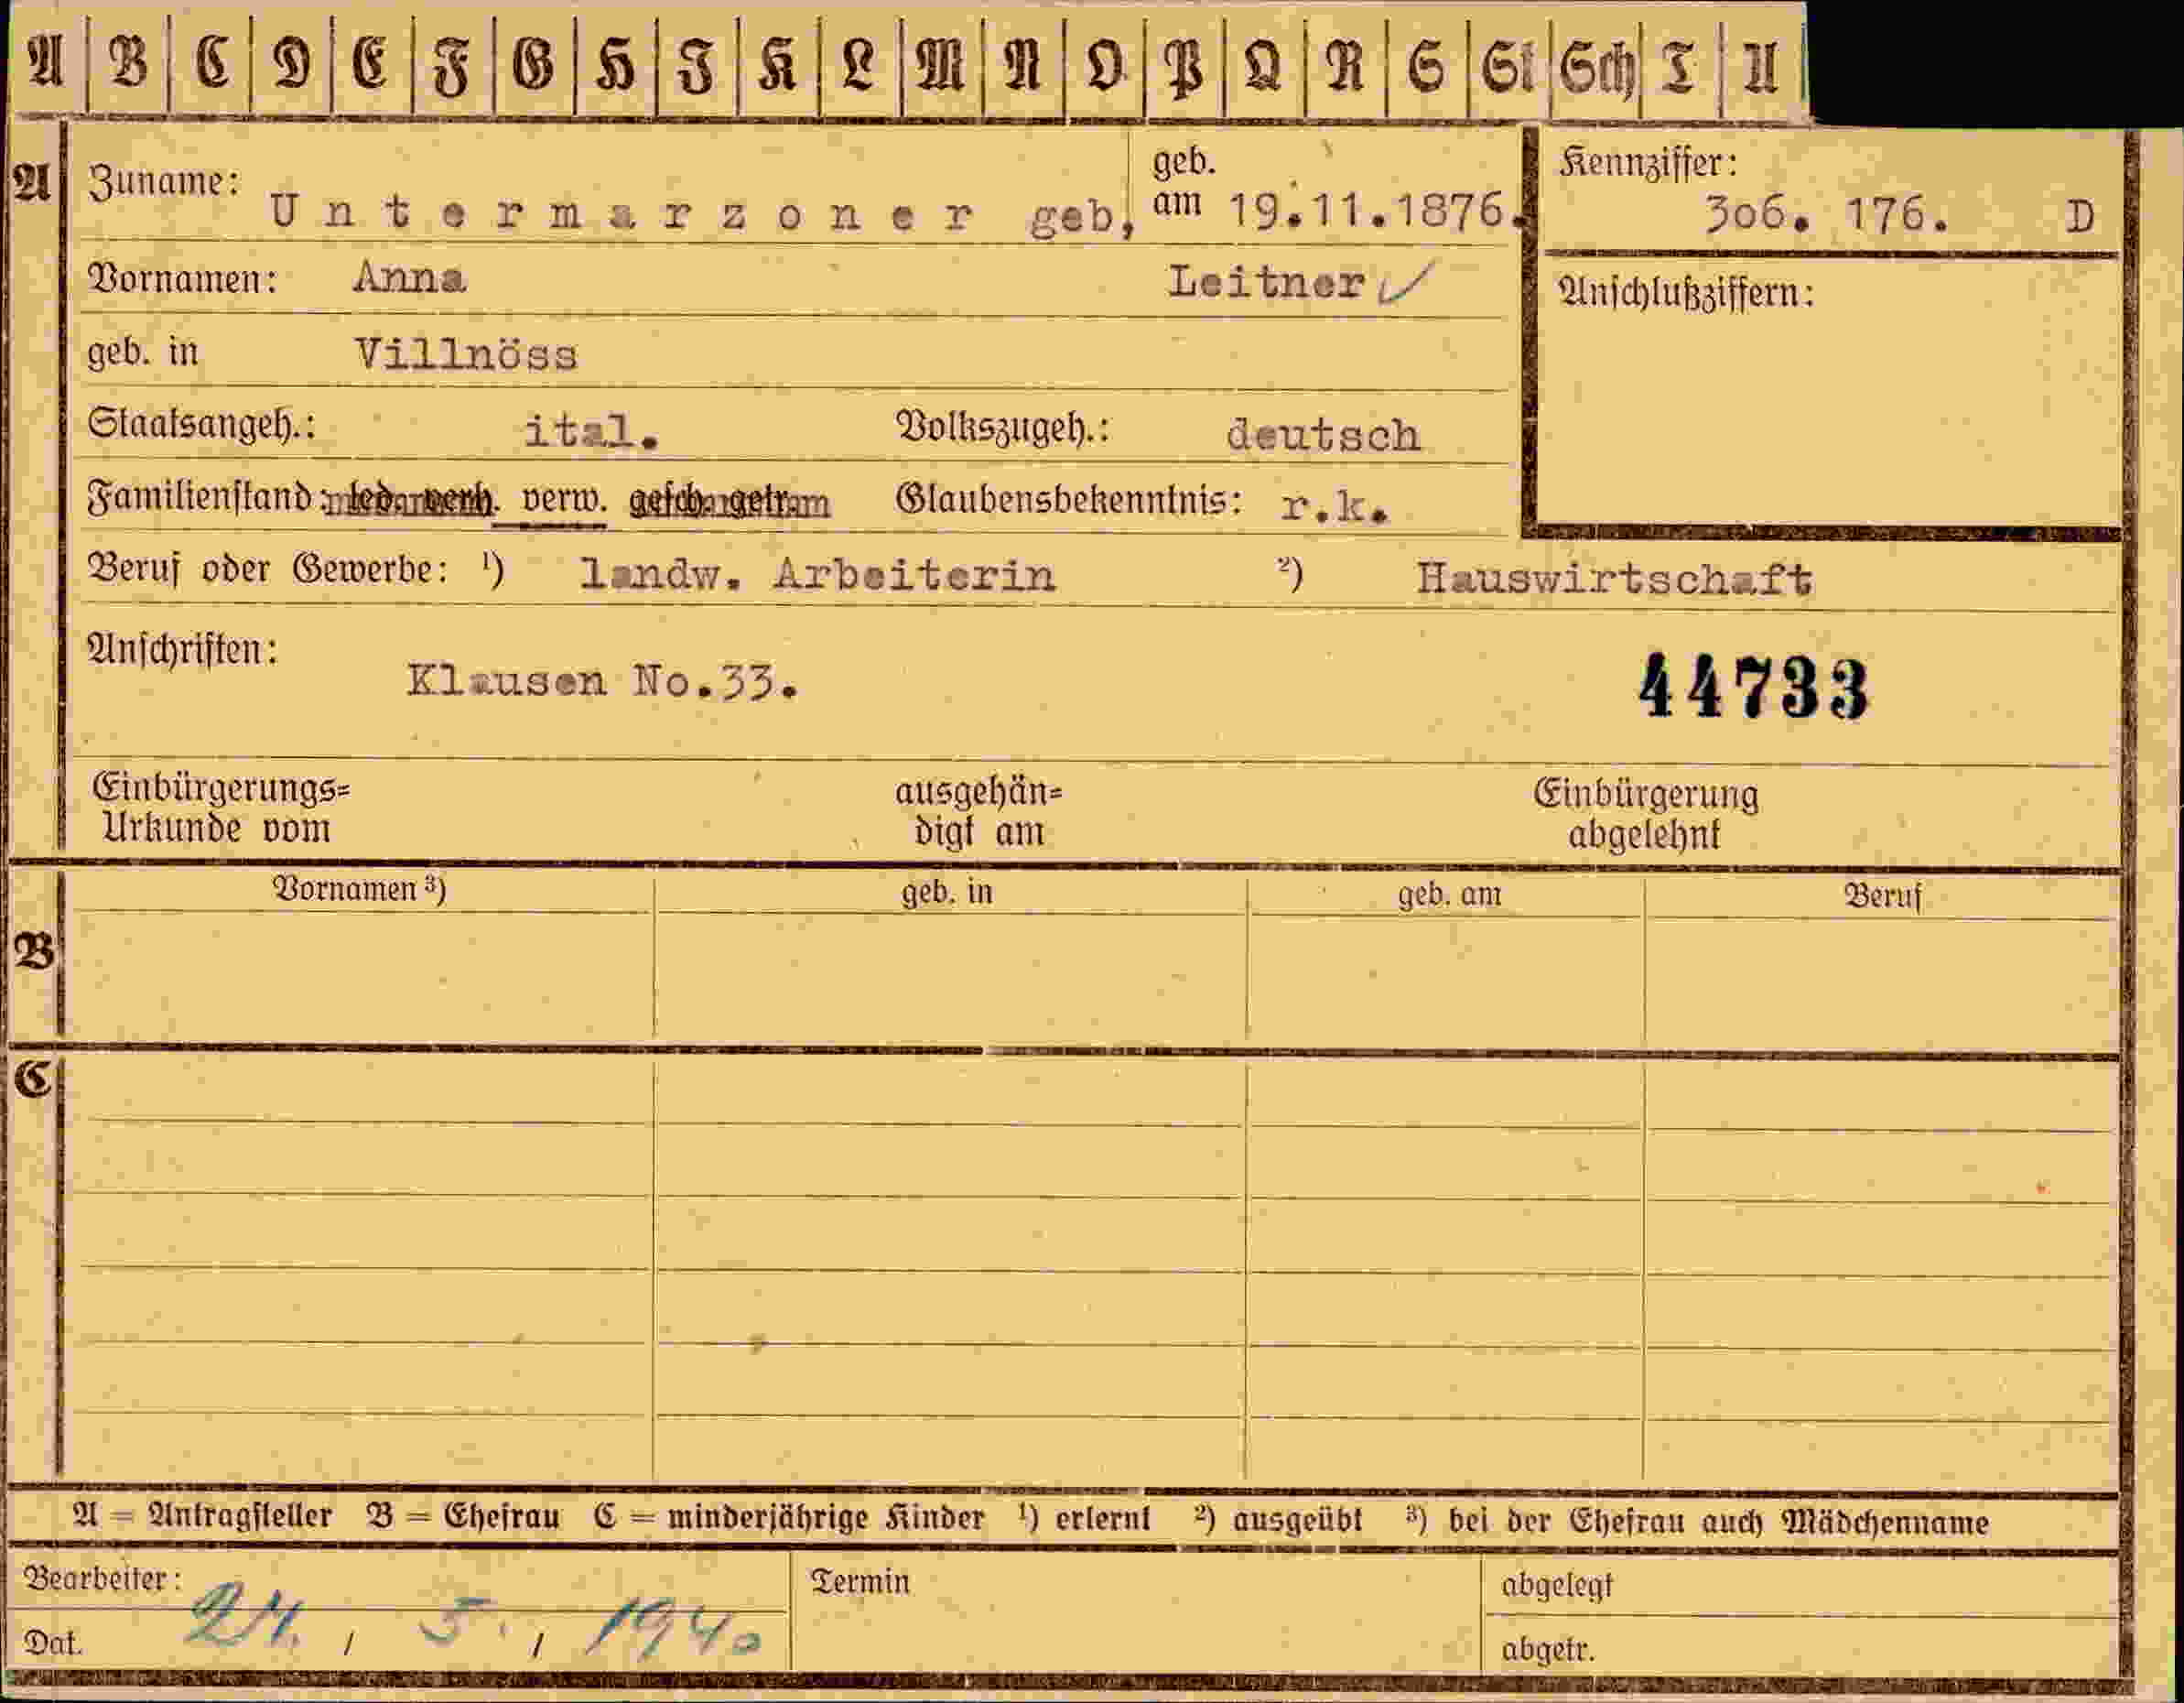 A B C D E F G H I K L M N O P Q R S St Sch T U
A
Zuname: Untermarzoner geb, geb. am 19.11.1876.
Kennziffer: 306. 176. D
Vornamen: Anna Leitner ✓
Anschlußziffern:
geb. in Villnöss
Staatsangeh.: ital. Volkszugeh.: deutsch
Familienstand: led. verh. verw. gesch. getr. Glaubensbekenntnis: r.k.
Beruf oder Gewerbe: ¹) landw. Arbeiterin ²) Hauswirtschaft
Anschriften: Klausen No.33.
44733
Einbürgerungs=
Urkunde vom
ausgehän=
digt am
Einbürgerung
abgelehnt
B
Vornamen ³) geb. in geb. am Beruf
C
A = Antragsteller B = Ehefrau C = minderjährige Kinder ¹) erlernt ²) ausgeübt ³) bei der Ehefrau auch Mädchenname
Bearbeiter: Termin abgelegt
Dat. / 5. / 1940 abgetr.